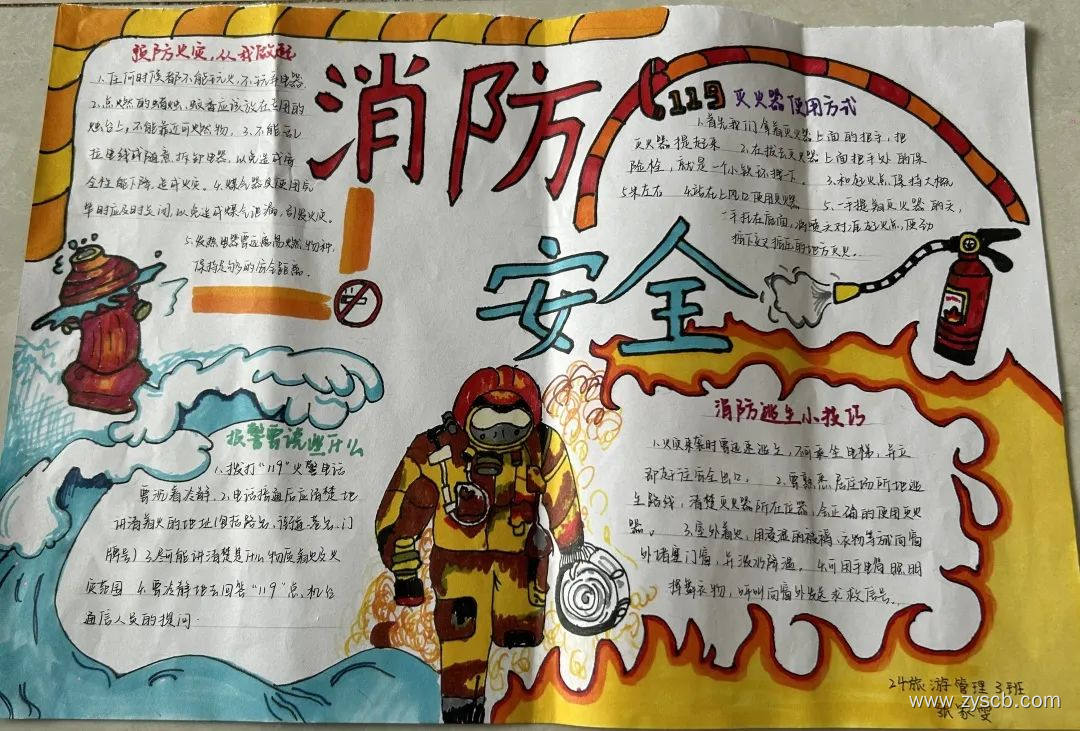 消防
安全
预防火灾，从我做起
1.任何时候都不能玩火，不玩弄电器.
2.点燃的蜡烛、蚊香应该放在专用的
烛台上，不能靠近可燃物. 3.不能乱
拉电线或随意拆卸电器，以免造成安
全性能下降，造成火灾。4.煤气器具使用完
毕时应及时关闭，以免造成煤气泄漏，引发火灾。
5.发热电器要远离易燃物种，
保持足够的安全距离。
119 灭火器使用方式
1.首先我们拿着灭火器上面的把手，把
灭火器提起来 2.在拔去灭火器上面把手处的保
险栓，就是一个小铁环拽下. 3.和起火点保持大概
5米左右 4.站在上风口使用灭火器 5.一手提着灭火器的头，
一手托在底面，将喷头对准起火点，使劲
摁下去摁压的地方灭火。
报警要说些什么
1.拨打“119”火警电话
要沉着冷静. 2.电话接通后应清楚地
讲清着火的地址(包括路名、弄道巷名、门
牌号) 3.尽可能讲清楚是什么物质着火及火
灾范围 4.要冷静地去回答“119”总机台
通信人员的提问.
消防逃生小技巧
1.火灾来袭时要迅速逃生，不可乘坐电梯，并立
即赶往安全出口. 2.要熟悉居住场所地逃
生路线，清楚灭火器所在位置，会正确的使用灭火
器。 3.室外着火，用浸湿的被褥、衣物等或向窗
外堵塞门窗，并泼水降温。 4.可用手电筒照明
挥舞衣物，呼叫向窗外发送求救信号.
24旅游管理3班
张家雯
www.zyscb.com